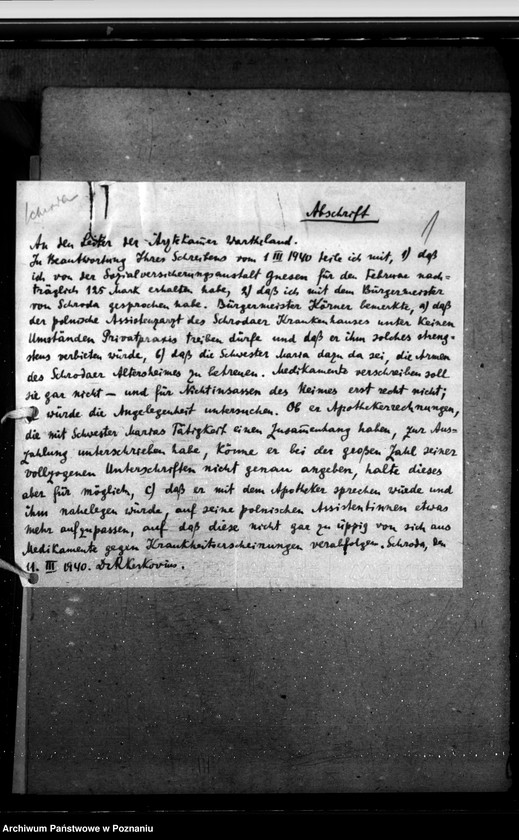 Schroda
Abschrift
1
An den Leiter der Ärztekammer Wartheland.
In Beantwortung Ihres Schreibens vom 1 III 1940 teile ich mit, 1) daß
ich von der Sozialversicherungsanstalt Gnesen für den Februar nach=
träglich 125 Mark erhalten habe, 2) daß ich mit dem Bürgermeister
von Schroda gesprochen habe. Bürgermeister Körner bemerkte, a) daß
der polnische Assistenzarzt des Schrodaer Krankenhauses unter keinen
Umständen Privatpraxis treiben dürfe und daß er ihm solches streng=
stens verbieten würde, b) daß die Schwester Maria dazu da sei, die Armen
des Schrodaer Altersheimes zu betreuen. Medikamente verschreiben soll
sie gar nicht – und für Nichtinsassen des Heimes erst recht nicht;
würde die Angelegenheit untersuchen. Ob er Apothekerrechnungen,
die mit Schwester Marias Tätigkeit einen Zusammenhang haben, zur Aus=
zahlung unterschrieben habe, könne er bei der großen Zahl seiner
vollzogenen Unterschriften nicht genau angeben, halte dieses
aber für möglich, c) daß er mit dem Apotheker sprechen würde und
ihm nahelegen würde, auf seine polnischen Assistentinnen etwas
mehr aufzupassen, auf daß diese nicht gar zu üppig von sich aus
Medikamente gegen Krankheitserscheinungen verabfolgen. Schroda, den
11. III 1940. Dr R Keskovius.
Archiwum Państwowe w Poznaniu